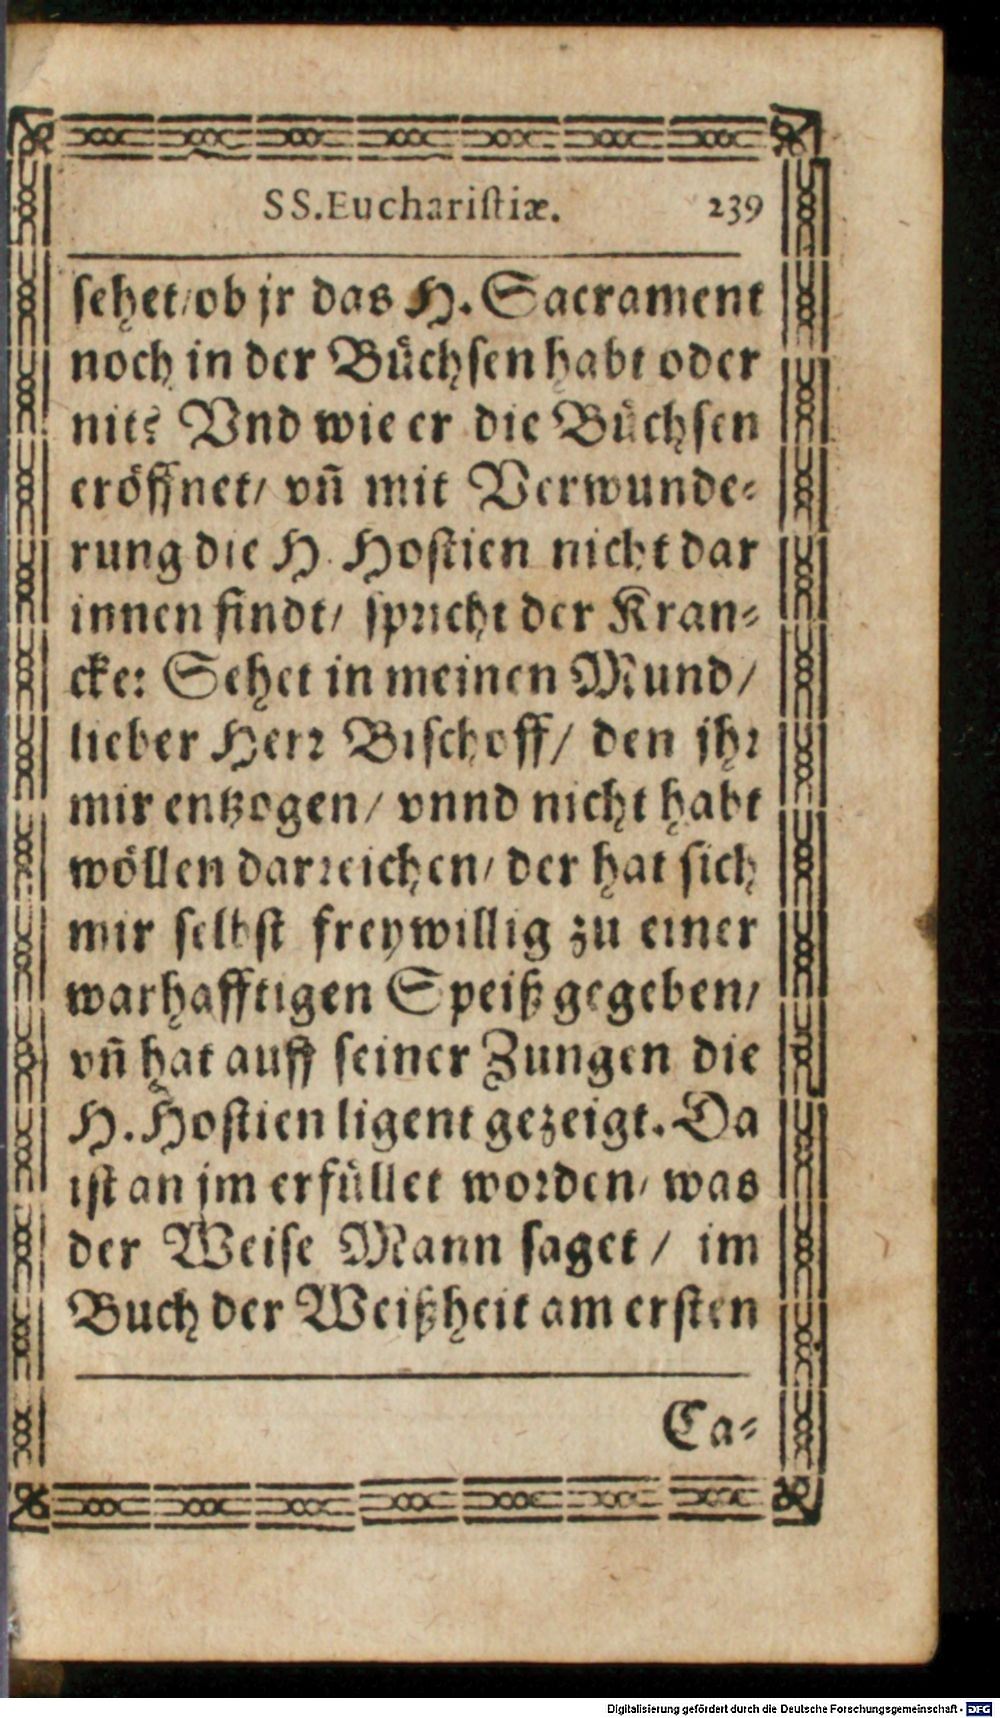 SS. Euchariſtiæ. 239
ſehet/ ob jr das H. Sacrament
noch in der Büchſen habt oder
nit? Vnd wie er die Büchſen
eröffnet/ vñ mit Verwunde-
rung die H. Hoſtien nicht dar
innen findt/ ſpricht der Kran-
cke: Sehet in meinen Mund/
lieber Herr Biſchoff/ den jhr
mir entzogen/ vnnd nicht habt
wöllen darreichen/ der hat ſich
mir ſelbſt freywillig zu einer
warhafftigen Speiß gegeben/
vñ hat auff ſeiner Zungen die
H. Hoſtien ligent gezeigt. Da
iſt an jm erfüllet worden/ was
der Weiſe Mann ſaget/ im
Buch der Weißheit am erſten
Ca-
Digitalisierung gefördert durch die Deutsche Forschungsgemeinschaft - DFG